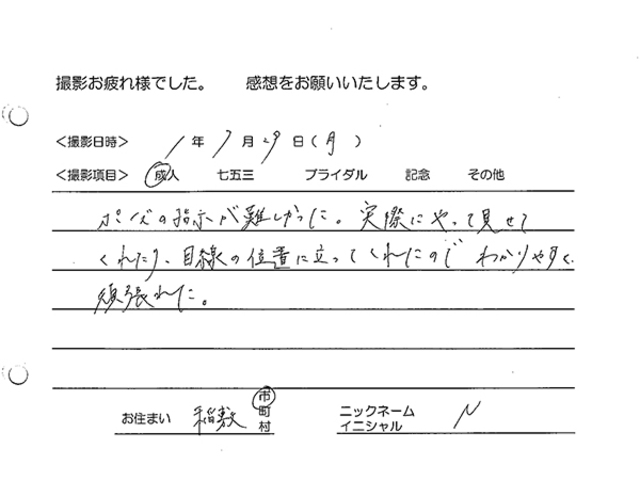 撮影お疲れ様でした。 感想をお願いいたします。
<撮影日時> 1年7月29日(月)
<撮影項目> 成人 七五三 ブライダル 記念 その他
ポーズの指示が難しかった。実際にやって見せて
くれたり、目線の位置に立ってくれたので わかりやすく
頑張れた。
お住まい 稲敷 市町村 ニックネーム イニシャル N